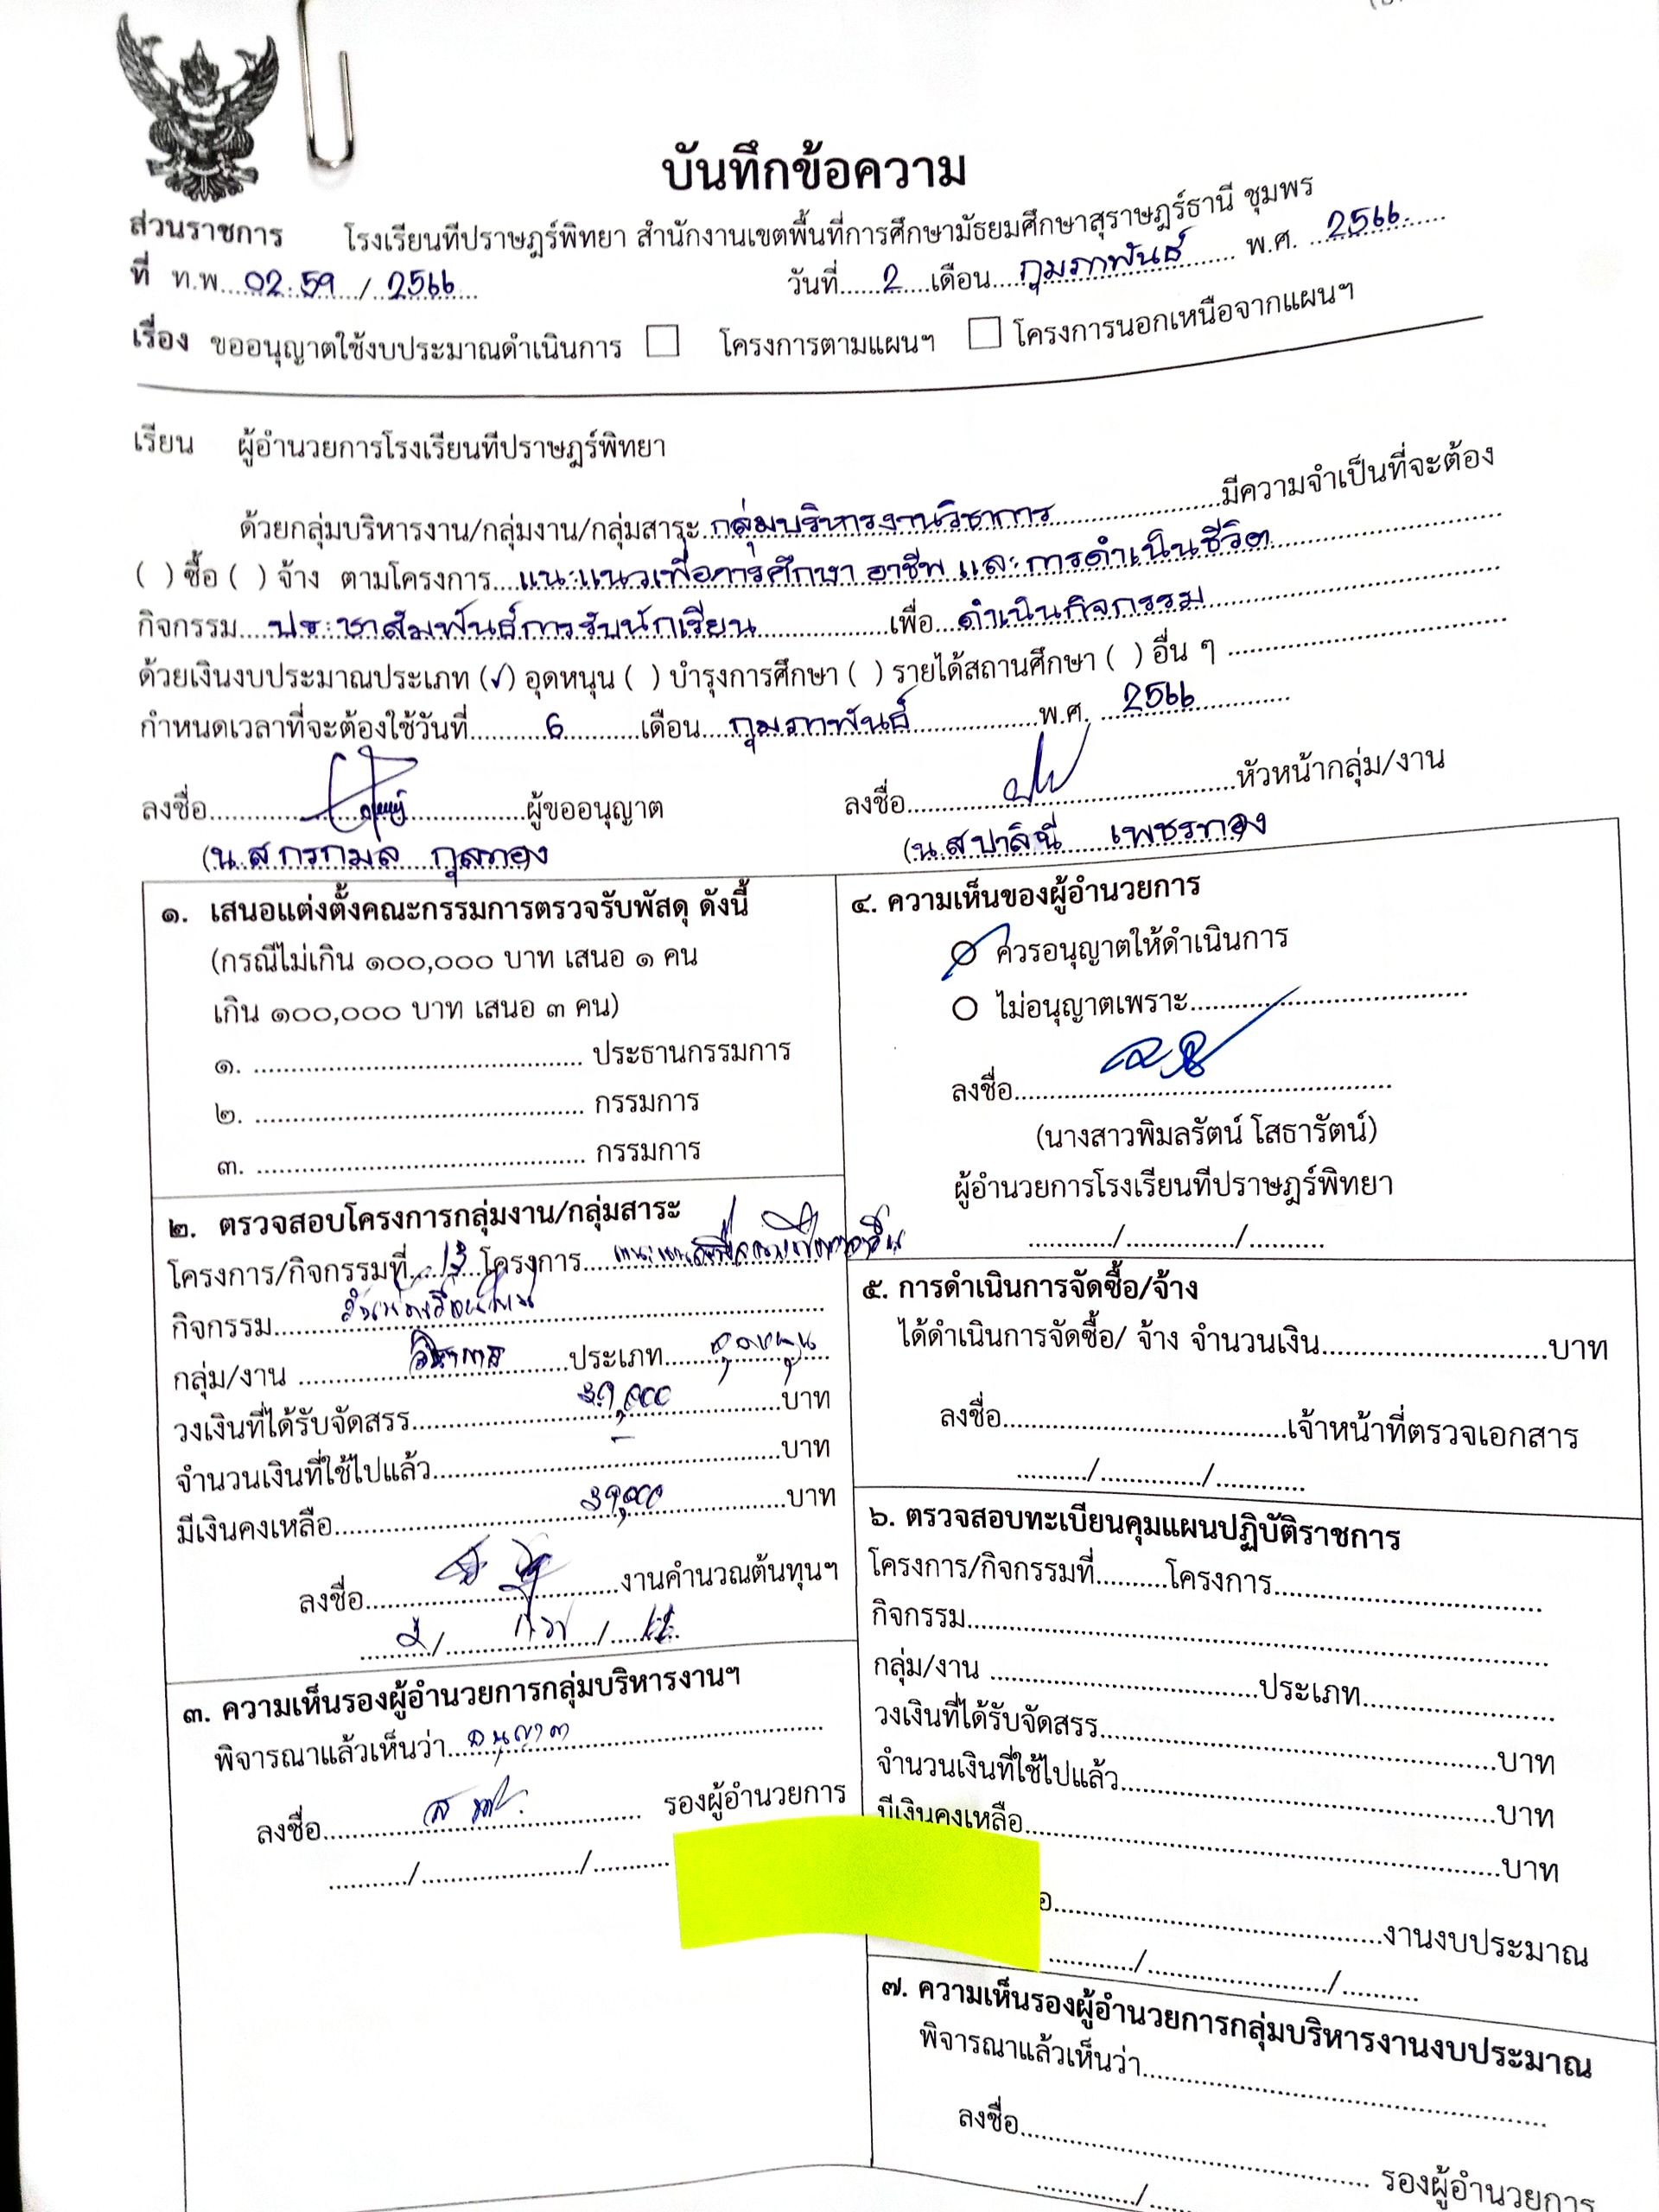 บันทึกข้อความ
ส่วนราชการ โรงเรียนทีปราษฎร์พิทยา สำนักงานเขตพื้นที่การศึกษามัธยมศึกษาสุราษฎร์ธานี ชุมพร
ที่ ท.พ....02.59..../..2566.... วันที่......2....เดือน....กุมภาพันธ์...... พ.ศ. ...2566......
เรื่อง ขออนุญาตใช้งบประมาณดำเนินการ ☐ โครงการตามแผนฯ ☐ โครงการนอกเหนือจากแผนฯ
เรียน ผู้อำนวยการโรงเรียนทีปราษฎร์พิทยา
ด้วยกลุ่มบริหารงาน/กลุ่มงาน/กลุ่มสาระ..กลุ่มบริหารงานวิชาการ..........มีความจำเป็นที่จะต้อง
( ) ซื้อ ( ) จ้าง ตามโครงการ...แนะแนวเพื่อการศึกษา อาชีพ และการดำเนินชีวิต..........
กิจกรรม....ประชาสัมพันธ์การรับนักเรียน..........เพื่อ...ดำเนินกิจกรรม..........
ด้วยเงินงบประมาณประเภท (✓) อุดหนุน ( ) บำรุงการศึกษา ( ) รายได้สถานศึกษา ( ) อื่น ๆ ..........
กำหนดเวลาที่จะต้องใช้วันที่..........6..........เดือน....กุมภาพันธ์..........พ.ศ. ...2566..........
ลงชื่อ..........ผู้ขออนุญาต ลงชื่อ..........หัวหน้ากลุ่ม/งาน
(น.ส.กรกมล กุลทอง) (น.ส.ปาลิณี เพชรทอง)
๑. เสนอแต่งตั้งคณะกรรมการตรวจรับพัสดุ ดังนี้
(กรณีไม่เกิน ๑๐๐,๐๐๐ บาท เสนอ ๑ คน
เกิน ๑๐๐,๐๐๐ บาท เสนอ ๓ คน)
๑. .......... ประธานกรรมการ
๒. .......... กรรมการ
๓. .......... กรรมการ
๒. ตรวจสอบโครงการกลุ่มงาน/กลุ่มสาระ
โครงการ/กิจกรรมที่..........โครงการ..........
กิจกรรม..........
กลุ่ม/งาน ....วิชาการ......ประเภท....อุดหนุน....
วงเงินที่ได้รับจัดสรร..........39,000..........บาท
จำนวนเงินที่ใช้ไปแล้ว..........-..........บาท
มีเงินคงเหลือ..........39,000..........บาท
ลงชื่อ..........งานคำนวณต้นทุนฯ
....2./....กพ..../....66..
๓. ความเห็นรองผู้อำนวยการกลุ่มบริหารงานฯ
พิจารณาแล้วเห็นว่า...อนุญาต..........
ลงชื่อ.......... รองผู้อำนวยการ
........../........../..........
๔. ความเห็นของผู้อำนวยการ
ควรอนุญาตให้ดำเนินการ
ไม่อนุญาตเพราะ..........
ลงชื่อ..........
(นางสาวพิมลรัตน์ โสธารัตน์)
ผู้อำนวยการโรงเรียนทีปราษฎร์พิทยา
........../........../..........
๕. การดำเนินการจัดซื้อ/จ้าง
ได้ดำเนินการจัดซื้อ/ จ้าง จำนวนเงิน..........บาท
ลงชื่อ..........เจ้าหน้าที่ตรวจเอกสาร
........../........../..........
๖. ตรวจสอบทะเบียนคุมแผนปฏิบัติราชการ
โครงการ/กิจกรรมที่..........โครงการ..........
กิจกรรม..........
กลุ่ม/งาน ..........ประเภท..........
วงเงินที่ได้รับจัดสรร..........บาท
จำนวนเงินที่ใช้ไปแล้ว..........บาท
มีเงินคงเหลือ..........บาท
อ..........งานงบประมาณ
........../........../..........
๗. ความเห็นรองผู้อำนวยการกลุ่มบริหารงานงบประมาณ
พิจารณาแล้วเห็นว่า..........
ลงชื่อ.......... รองผู้อำนวยการ
........../..........